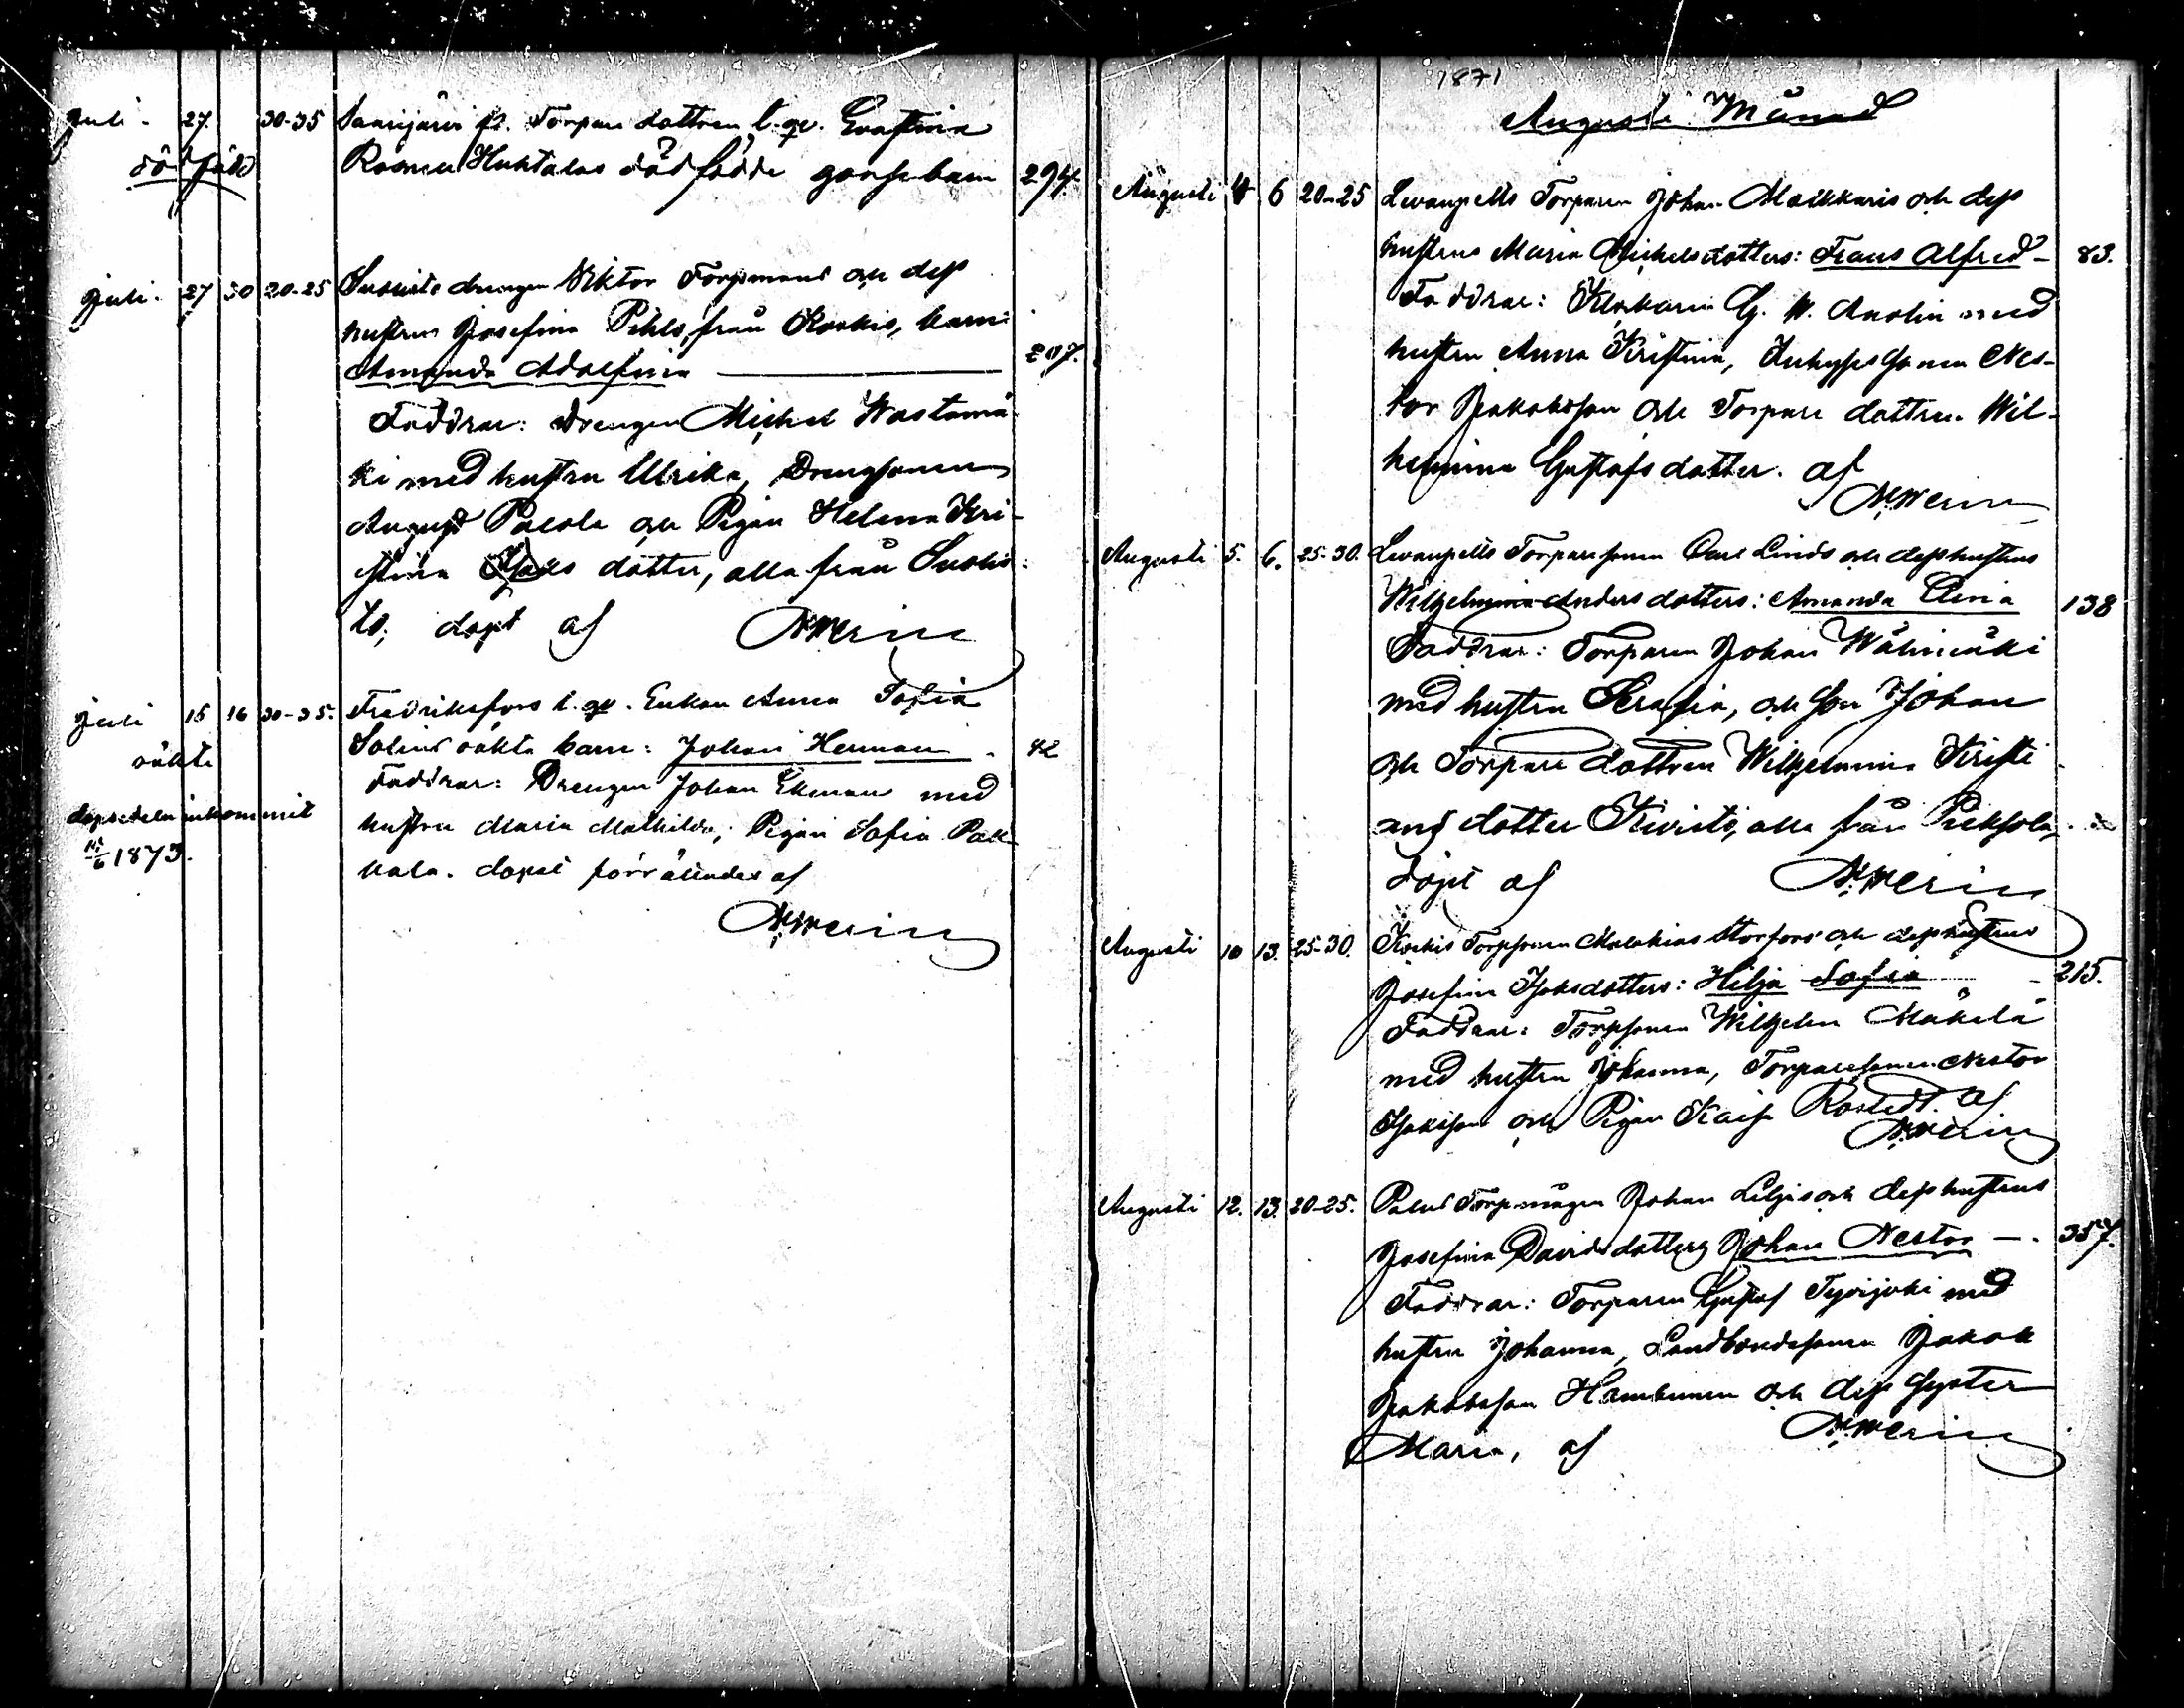 Juli. 27. 30-35 Saarijärvi fr. Torpare dottren l. qv. Evastina
död född Rosina Huhtalas dödfödde gossebarn 294.
Juli. 27 30 20-25 Suoristo drängen Viktor Torpmans och dess
hustrus Josefina Pihls, från Koskis, barn:
Amanda Adolfina 207.
Faddrar: Drengen Michel Wastamä
ki med hustru Ulrika, Drengsonen
August Palola och Pigan Helena Kri-
stina Isaks dotter, alla från Suoris-
to; döpt af NWerin
Juli 15 16 30-35. Fredriksfors l. qv. Enkan Anna Sofia
Solins oäkta barn: Johan Herman 42
oäkta
Faddrar: Drengen Johan Ekman med
dopsedeln inkommit
hustru Maria Mathilda; Pigan Sofia Pak-
15/6 1873.
kala. döpt förrättades af
NWerin
1871
Augusti Månad
Augusti 4 6 20-25 Levanpelto Torparen Johan Malkkaris och dess
hustrus Maria Michelsdotters: Frans Alfred - 83.
Faddrar: Klockaren G. W. Anolin med
hustru Anna Kristina, Inhysessonen Nes-
tor Jakobsson och Torpare dottren Wil-
helmina Gustafs dotter. af
NWerin
Augusti 5. 6. 25-30. Levanpelto Torparesonen Carl Linds och dess hustrus
Wilhelmina Anders dotters: Amanda Elina 138
Faddrar: Torparen Johan Wälimäki
med hustru Serafia, och Son Johan
och Torpare dottren Wilhelmina Kristi-
ans dotter Kivisto, alla från Pieksola,
döpt af NWerin
Augusti 10 13. 25-30. Koskis Torpsonen Malakias Storfors och dess hustrus
Josefina Isaksdotters: Hilja Sofia 215.
Faddrar: Torpsonen Wilhelm Mäkelä
med hustru Johanna, Torparesonen Nestor
Isaksson och Pigan Kaisa Rostedt. af
NWerin
Augusti 12. 13. 20-25. Palus Torpmågen Johan Liljis och dess hustrus
Josefina Davidsdotters Johan Nestor -. 357.
Faddrar: Torparen Gustaf Tyvijoki med
hustru Johanna, Landbondesonen Jakob
Jakobsson Hambunen och dess Syster
Maria, af NWerin